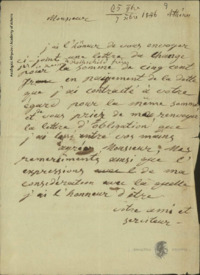 Monsieur
1846 Athènes
j'ai l'honneur de vous envoyer
ci joint une lettre de change
pour la somme de cinq cent
en payement de la dette
que j'ai contracté à votre
égard pour la même somme
et vous prier de me renvoyer
la lettre d'obligation que
j'ai entre vos mains
Monsieur Mes
remerciments ainsi que l'
expressions de ma
considération avec laquelle
j'ai l'honneur d'être
votre ami et
serviteur